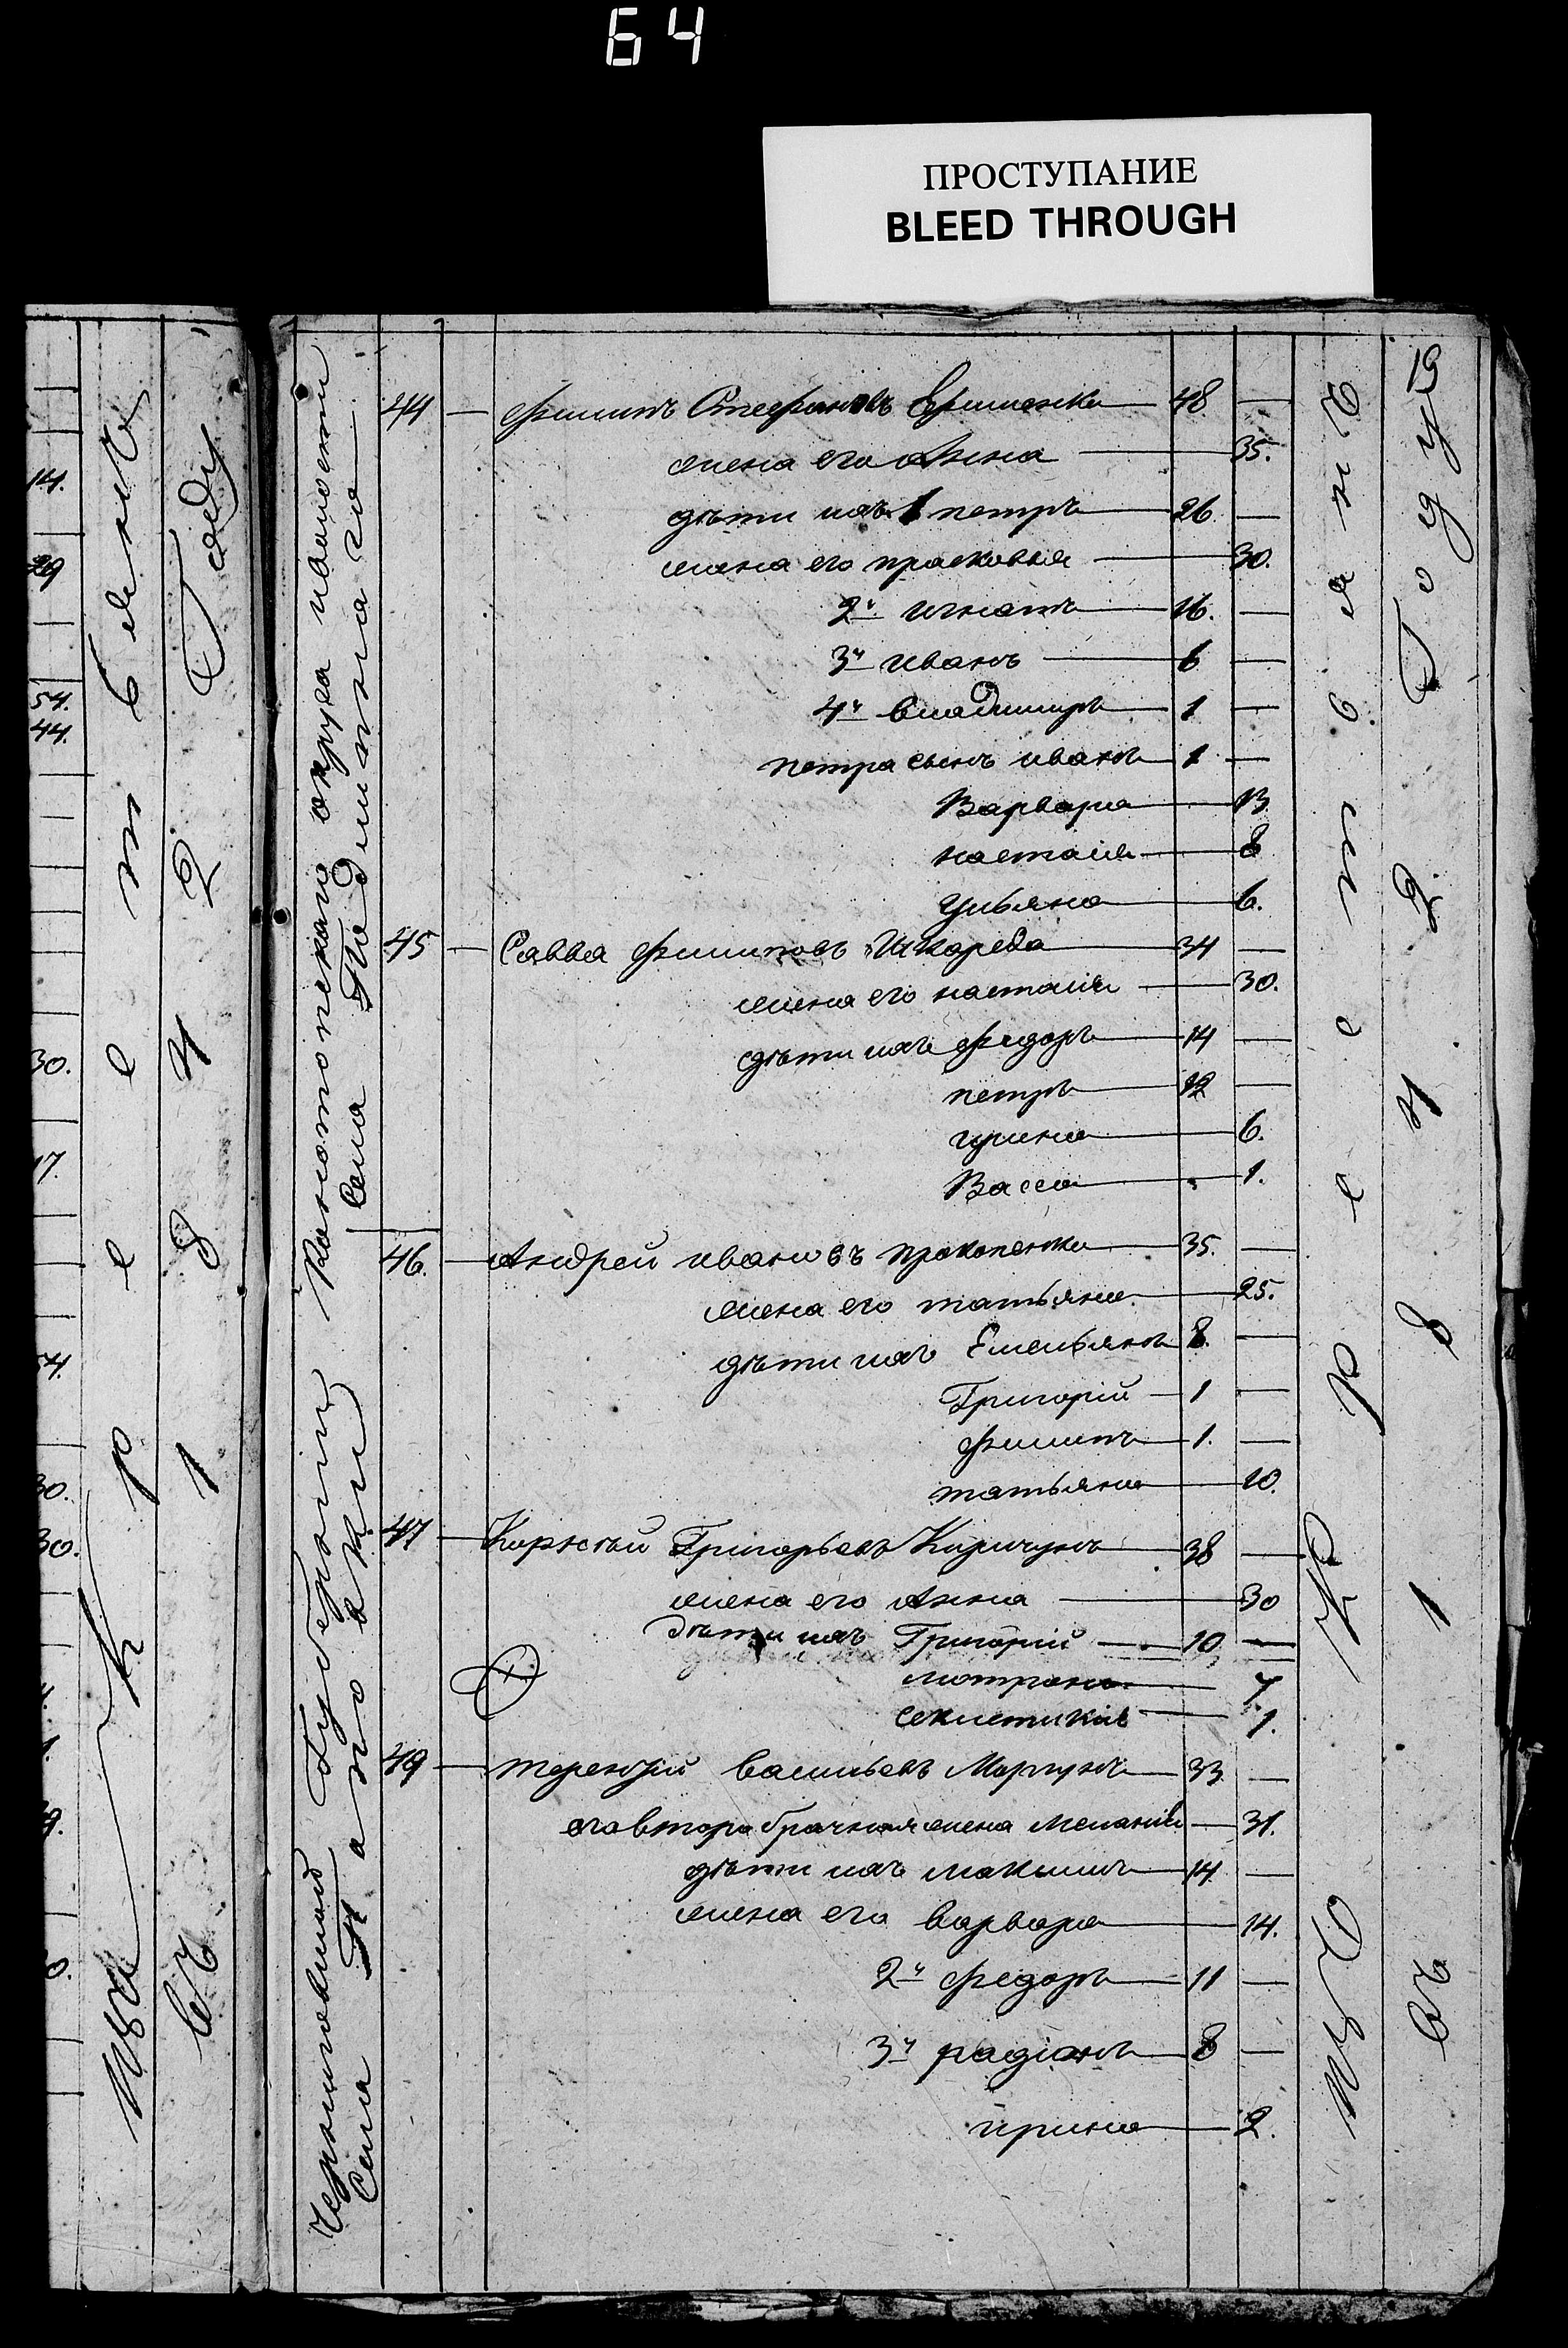 64
ПРОСТУПАНИЕ
BLEED THROUGH
19
Черниговской Губернии Конотопскаго округа волости
Села Поповки Села Подлипнаго
44 — Филипъ Стефановъ Ярошенко — 48 —
жена его Анна — 35.
дѣти ихъ 1 петръ — 26 —
жена его прасковья — 30.
2й игнатъ — 16. —
3й иванъ — 6 —
4й владимиръ — 1 —
петра сынъ иванъ — 1 —
Варвара — 13
настасія — 8
ульяна — 6.
45 — Савва Филиповъ Шкареда — 34 —
жена его настасія — 30.
дѣти ихъ федоръ — 14 —
петръ — 12 —
ирина — 6.
Васса — 1.
46. — Андрей ивановъ прокопенко — 35. —
жена его татьяна — 25.
дѣти ихъ Емельянъ 8. —
Григорій — 1 —
филипъ — 1. —
татьяна — 10.
47 — Корнѣй Григорьевъ — 38 —
жена его Анна — 30
дѣти ихъ Григорій — 10 —
мотрона — 7
секлетикія — 1.
49 — терентій васильевъ Моргунъ — 33 —
его второбрачная жена меланія — 31.
дѣти ихъ максимъ — 14 —
жена его варвара — 14.
2й федоръ — 11 —
3й радіонъ — 8 —
ирина — 2.
Изъ Крестьянъ
въ 1842 Году
Изъ Крестьянъ
въ 1842 Году
14.
29
54.
44.
30.
17.
54.
30.
30.